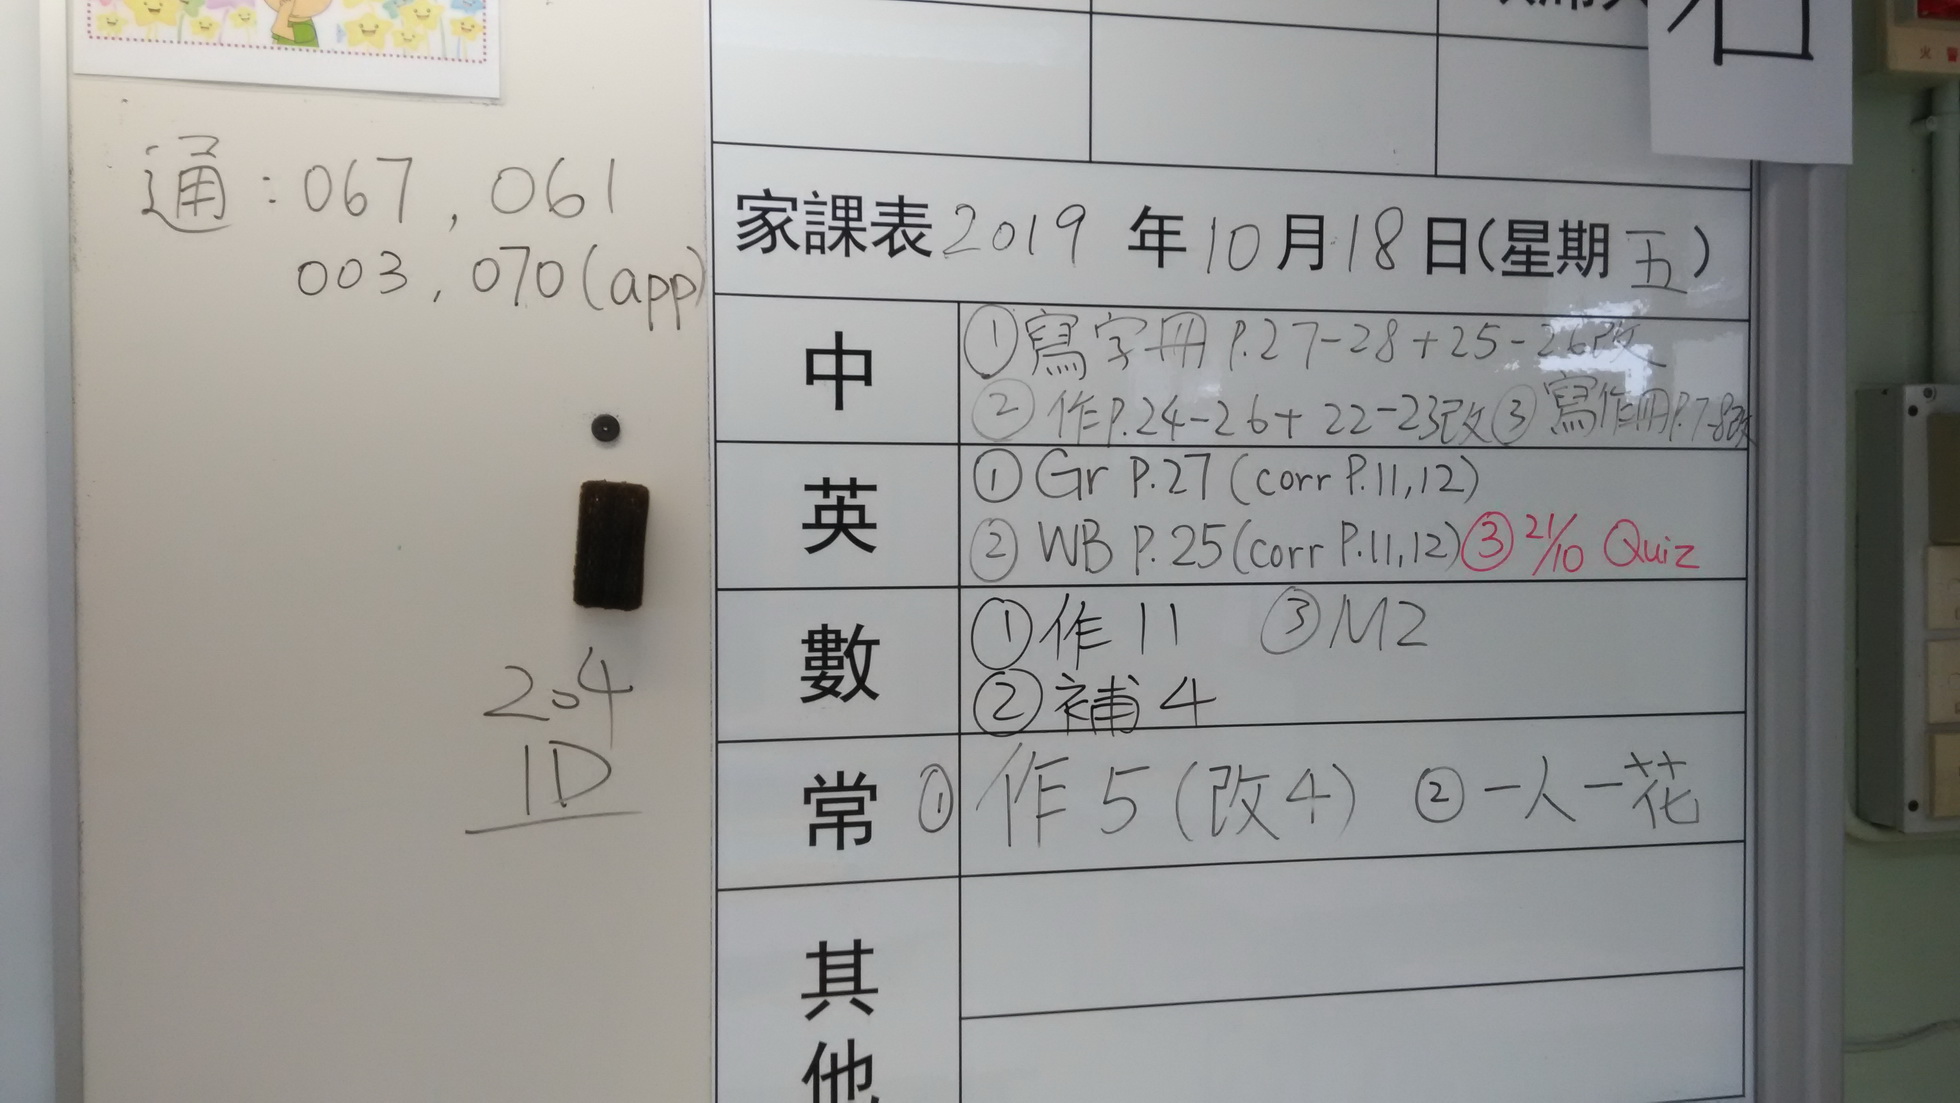 通：067，061
003，070(app)
2.4
1D
家課表 2019 年 10 月 18 日(星期 五)
中
①寫字冊 P.27-28+25-26改
②作P.24-26+22-23改③寫作冊P.7-8改
英
①Gr P.27 (corr P.11,12)
②WB P.25(corr P.11,12)③21/10 Quiz
數
①作11 ③M2
②補4
常 ①作5(改4) ②一人一花
其他
火警